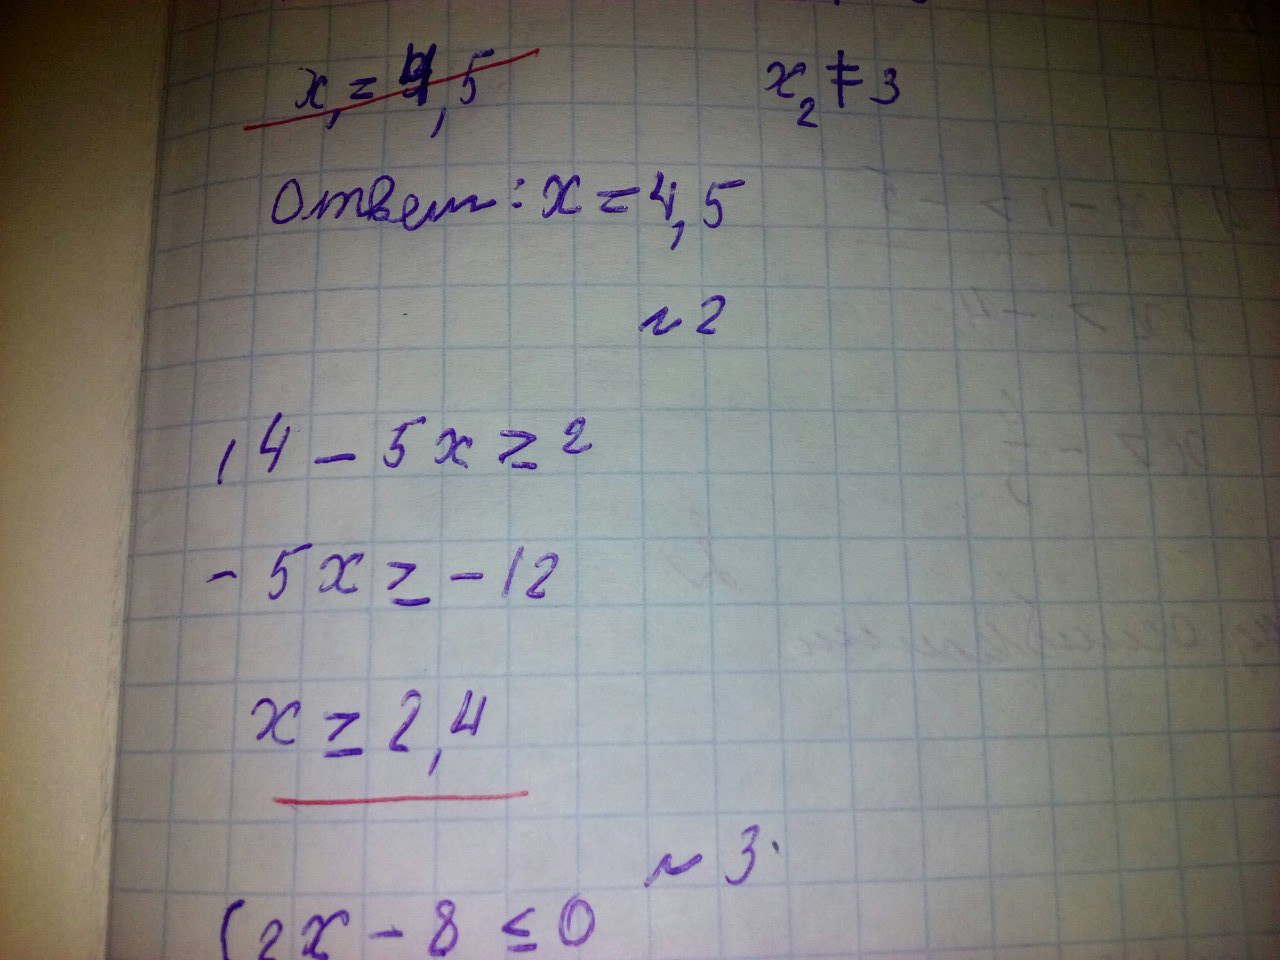 x₁ = 4,5 x₂ ≠ 3
Ответ: x = 4,5
№2
14 - 5x ≥ 2
- 5x ≥ -12
x ≥ 2,4
№3.
(2x - 8 ≤ 0